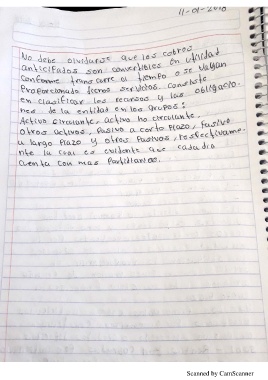 11-01-2018
No debe olvidarse que los cobros
anticipados son convertibles en utilidad
conforme transcurre el tiempo o se vallan
Proporcionado dicnos servicios. Consiste
en clasificar los recursos y las obligacio-
nes de la entidad en los grupos:
Activo circulante, activo no circulante,
otros activos, Pasivo a corto Plazo, Pasivo
a largo Plazo y otros Pasivos, respectivame-
nte la cual es evidente que cada dia
cuenta con mas Partidarios.
Scanned by CamScanner